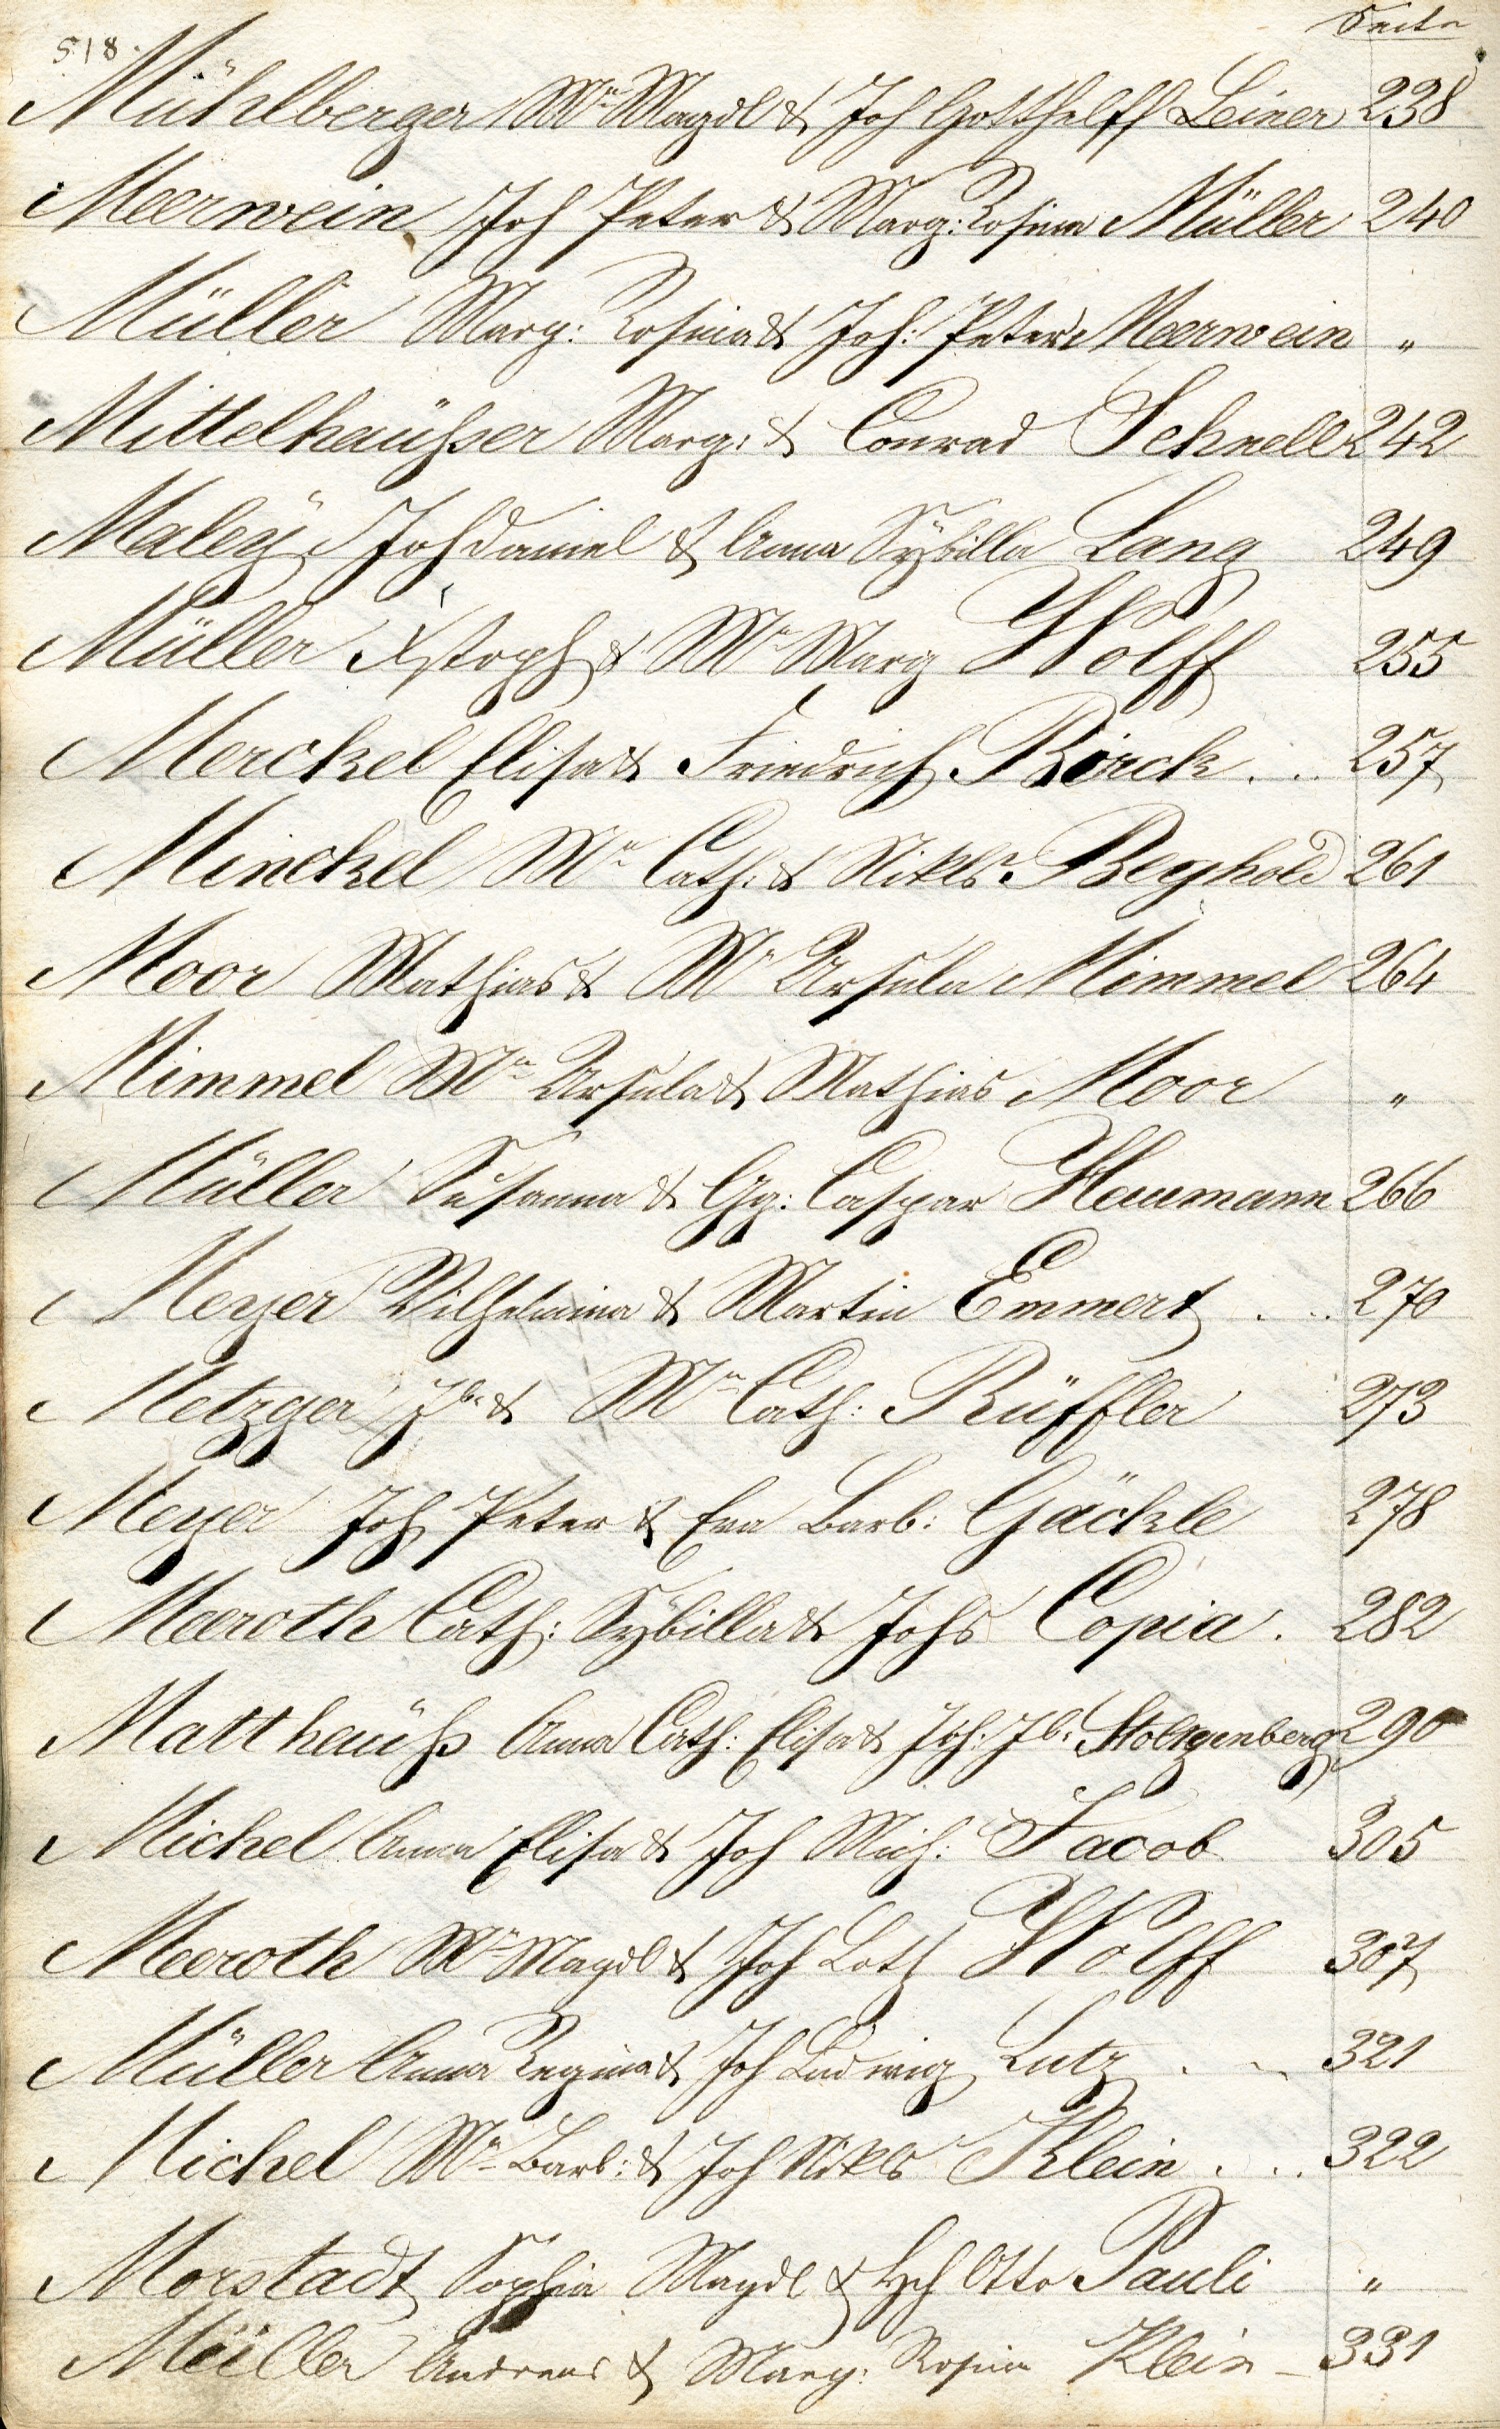 Seite
518.
Mühlberger Ma Magdl & Joh Gotthelff Leiner 238
Meerwein Joh Peter & Marg: Rosina Müller 240
Müller Marg: Rosina & Joh: Peter Meerwein "
Mittelhaüßer Marg: & Conrad Schnell 242
Maleÿ Joh Daniel & Anna Sÿbilla Lang 249
Müller Xstoph & Ma Marg Wolff 255
Merckel Elisa & Friedrich Birck . . . 257
Minckel Ma Cath: & Nikls Beyhold 261
Moor Mathias & Ma Ursula Mimmel 264
Mimmel Ma Ursula & Mathias Moor "
Müller Susanna & Gg: Caspar Haumann 266
Meyer Wilhelmina & Martin Emmert . . . 270
Metzger Jb & Ma Cath: Rüffler 273
Meyer Joh Peter & Eva Barb: Gäckle 278
Meeroth Cath: Sÿbilla & Johs Copia . 282
Matthaüß Anna Cath: Elisa & Joh: Jb: Stolzenberg 290
Michel Anna Elisa & Joh Mich: Jacob 305
Meeroth Ma Magdl & Joh Lotz Wolff 307
Müller Anna Regina & Joh Ludwig Lutz . . 321
Michel Ma Barb: & Joh Nikls Klein . . . 322
Morstadt Sophia Magdl & Hch Otto Pauli "
Müller Andreas & Marg: Rosina Klein 331